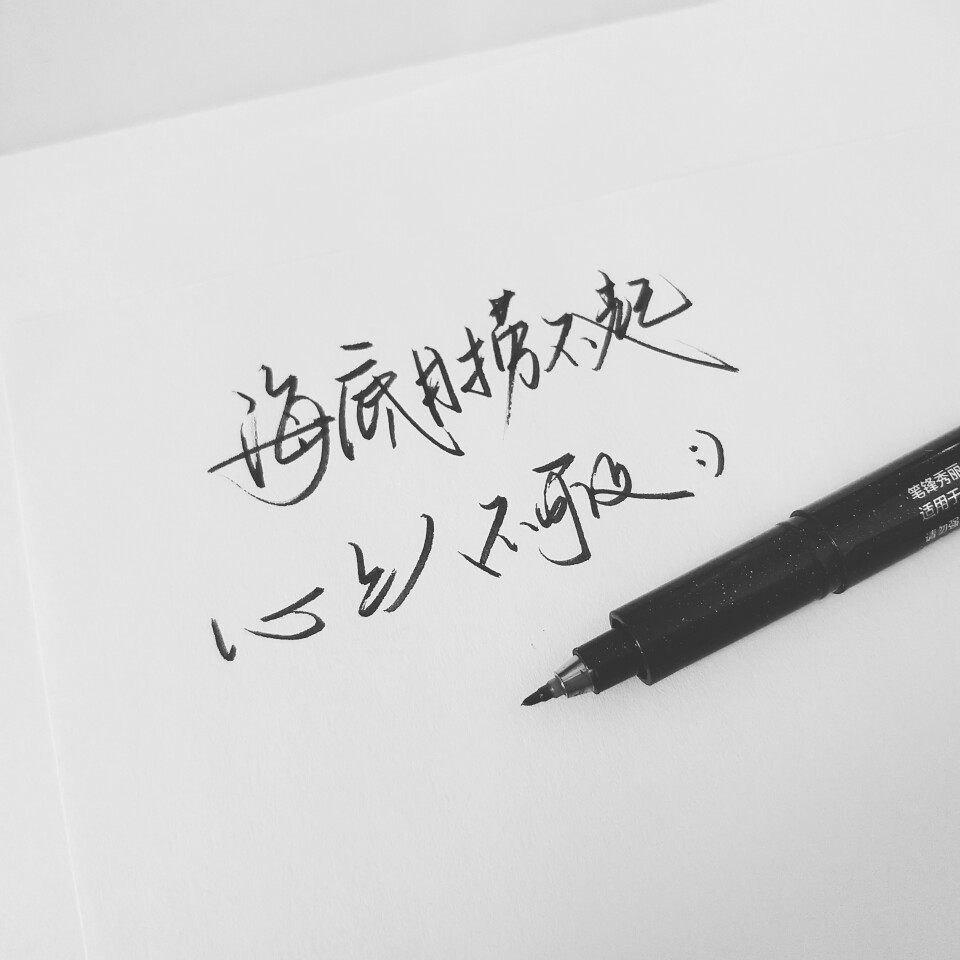 海底月捞不起
心上人不可及 :)
笔锋秀丽
适用于
请勿